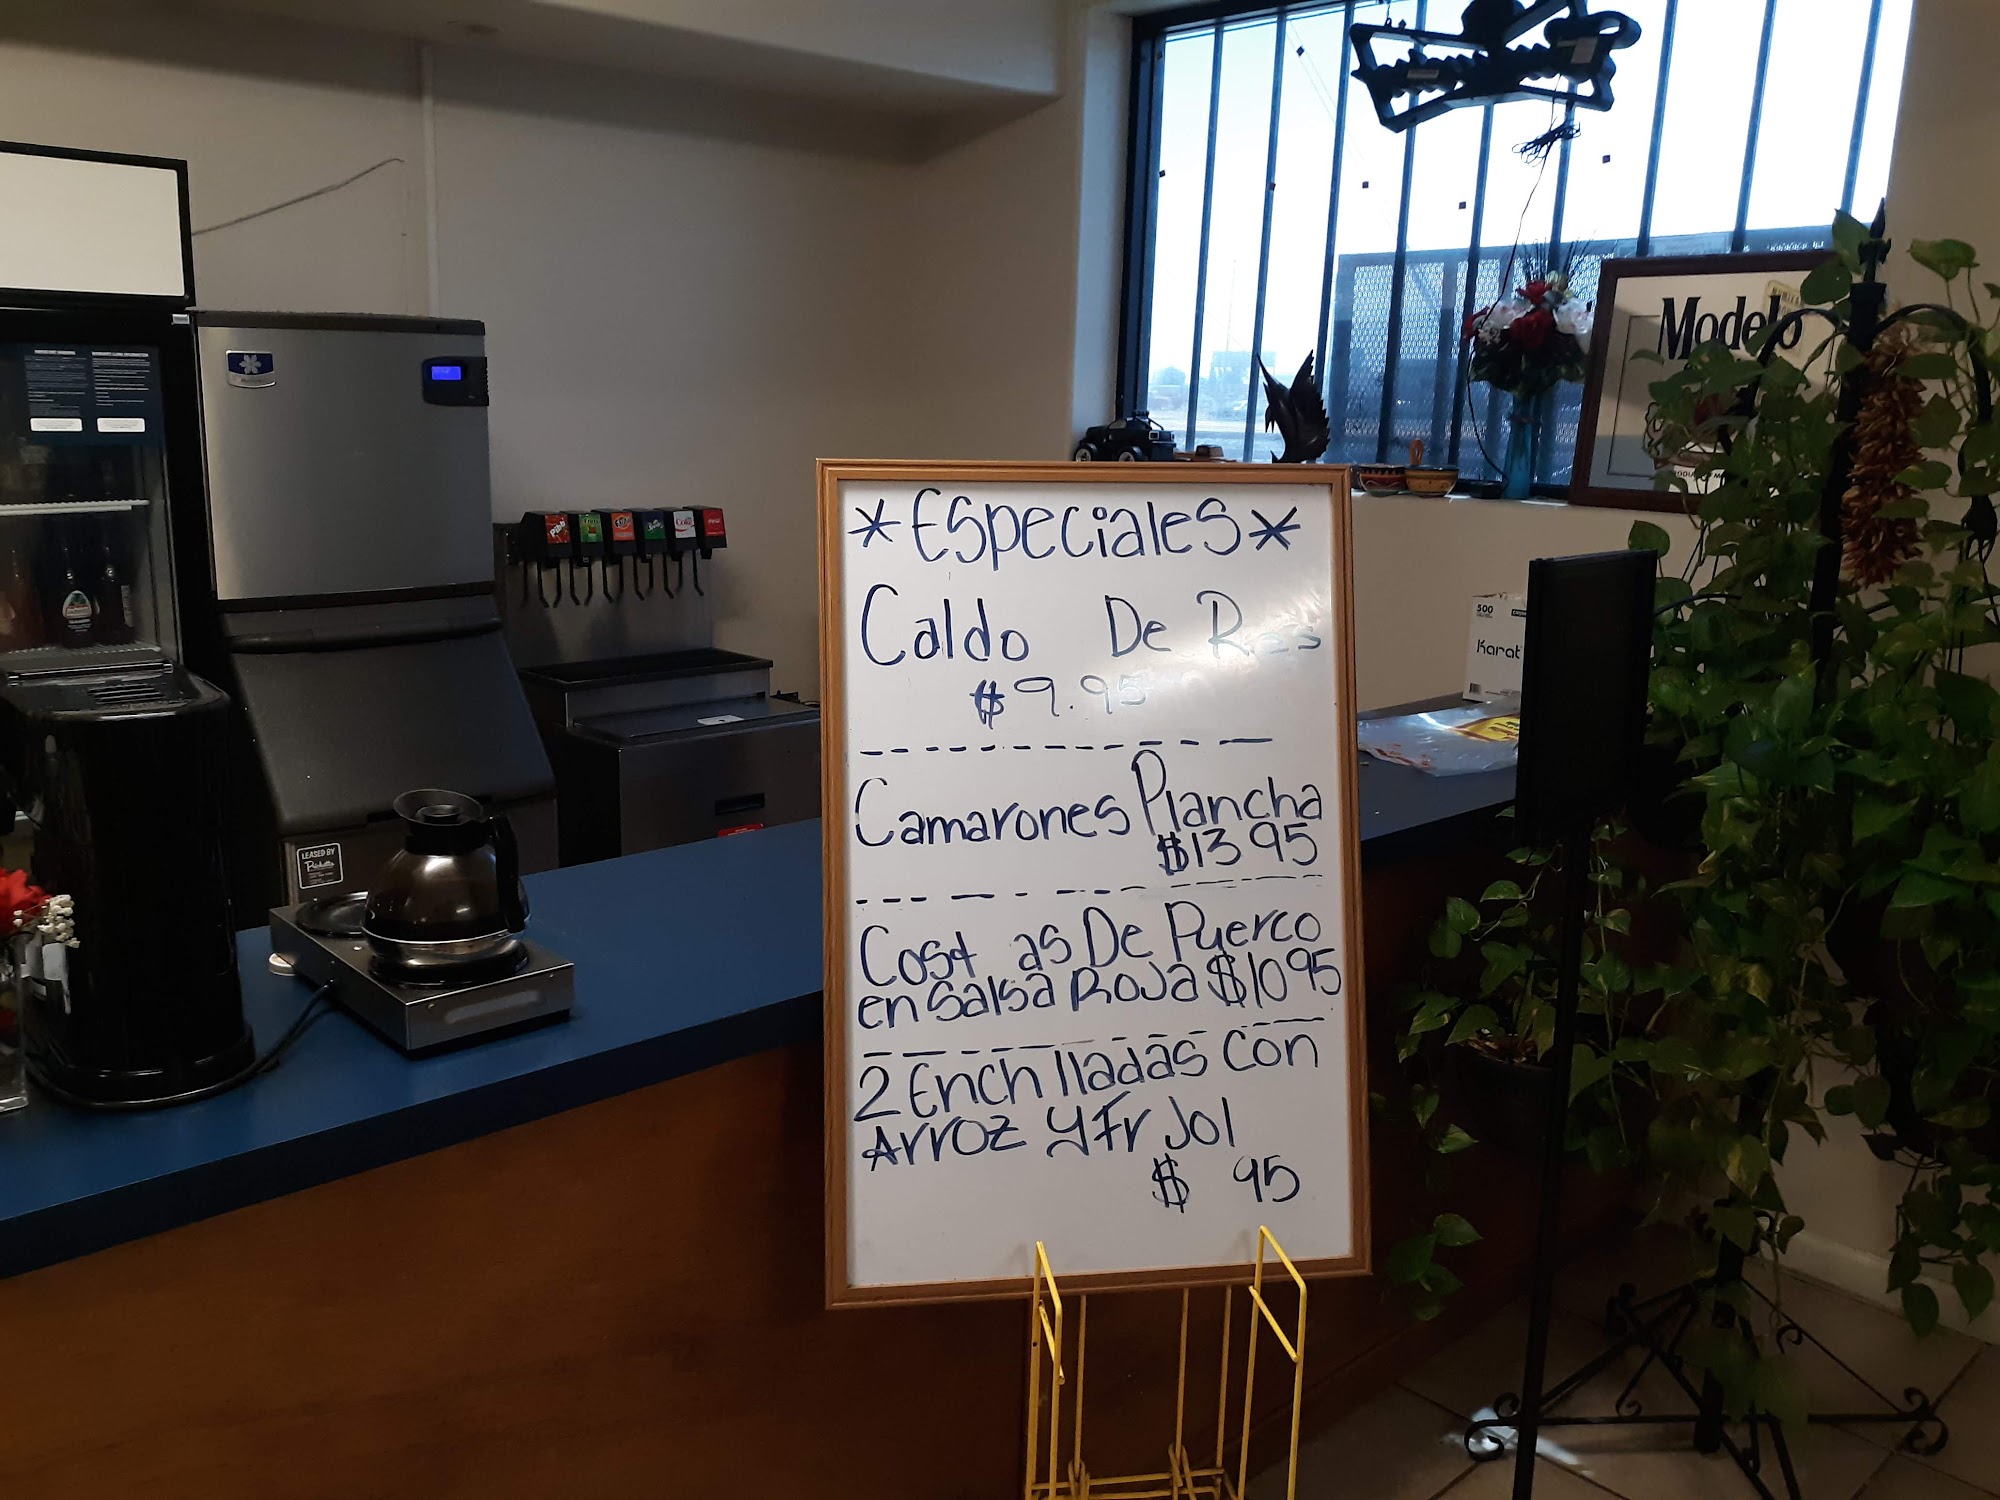 *Especiales*
Caldo De Res
$9.95
Camarones Plancha
$13 95
Cost as De Puerco
en Salsa Roja $10 95
2 Ench lladas Con
Arroz y Fr Jol
$ 95
Modelo
500
Karat
LEASED BY
Pibb
Coke